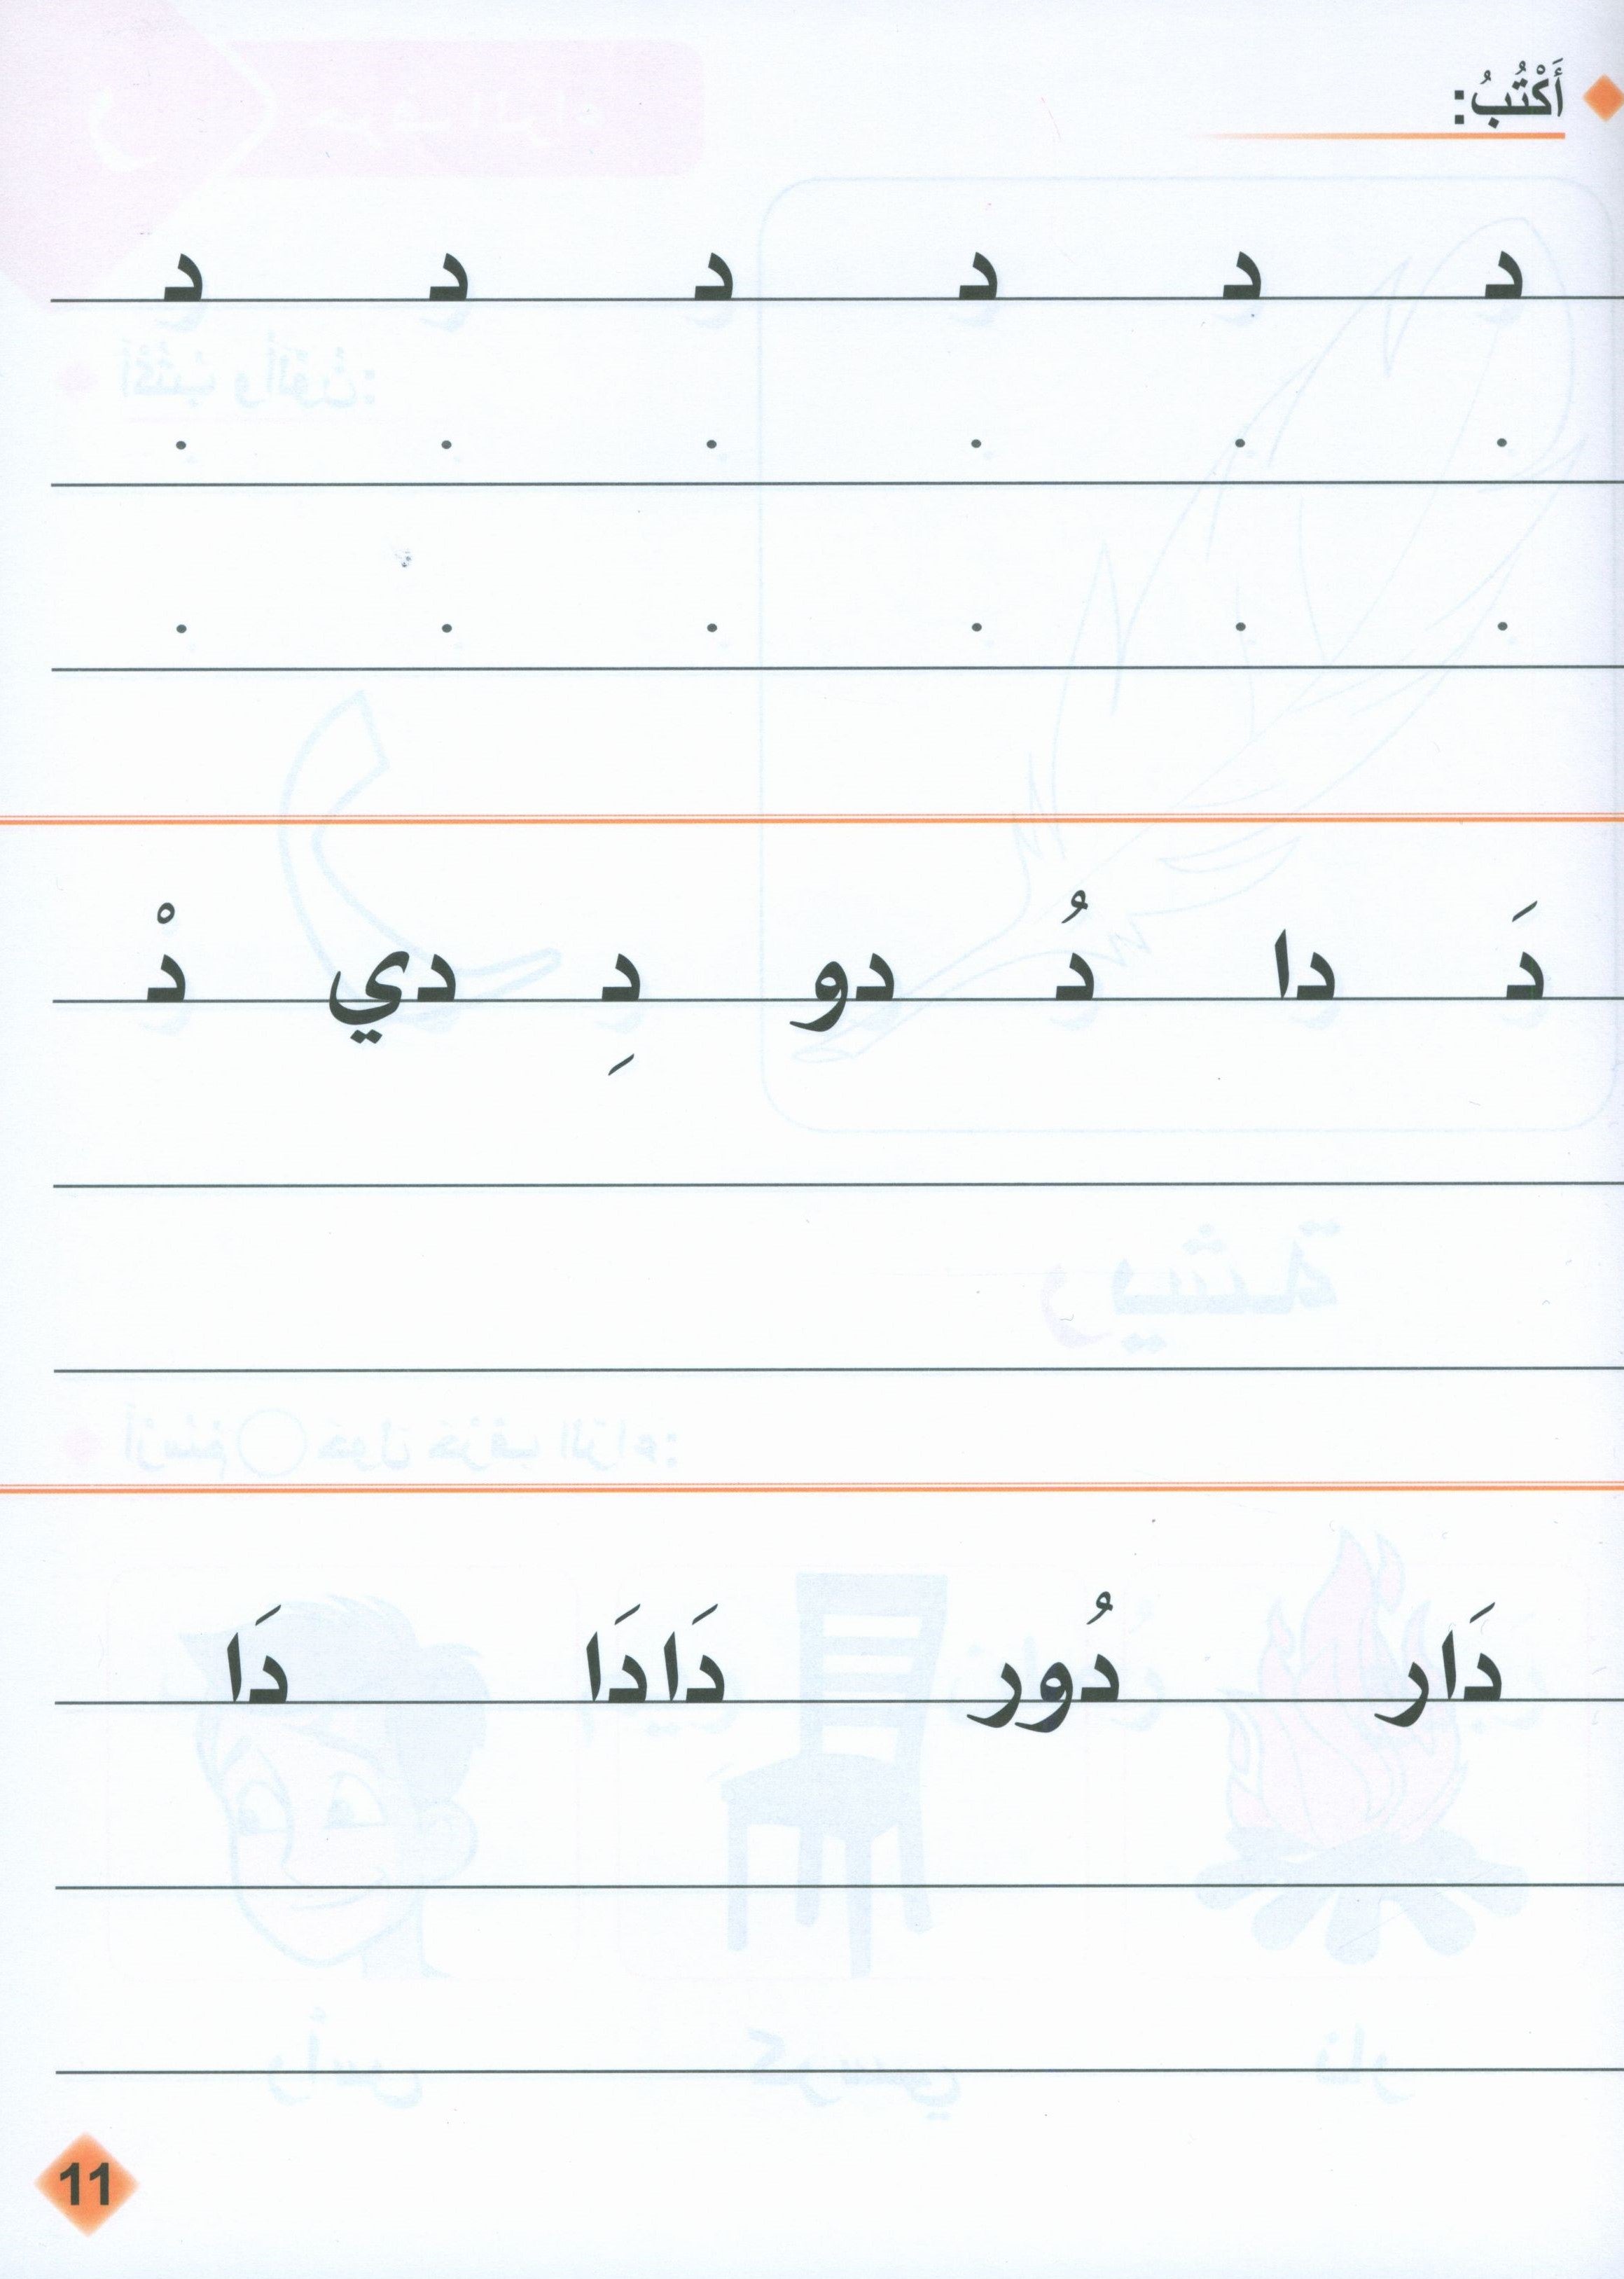 أَكْتُبُ:
د د د د د د
دَ دا دُ دو دِ دي دْ
دَار دُور دَادَا دَا
11